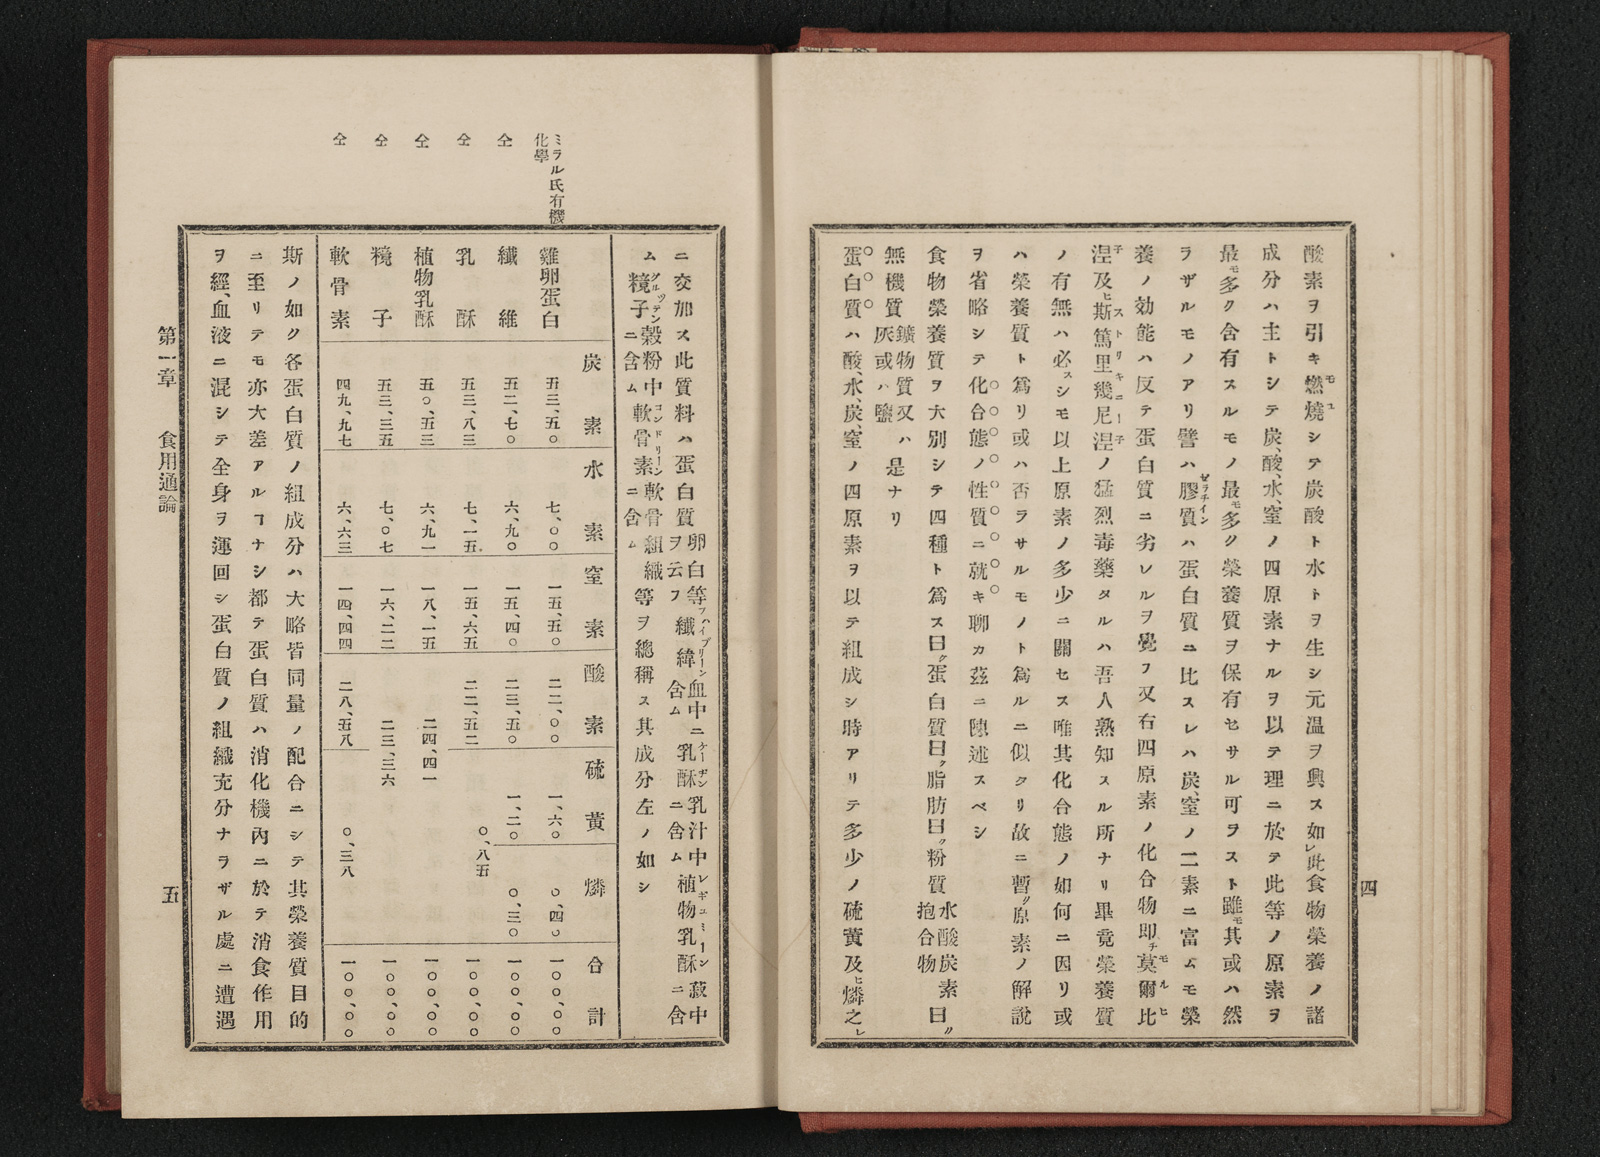 四
酸素ヲ引キ燃燒シテ炭酸ト水トヲ生シ元温ヲ興ス如此レ食物榮養ノ諸
成分ハ主トシテ炭、酸、水、窒ノ四原素ナルヲ以テ理ニ於テ此等ノ原素ヲ
最モ多ク含有スルモノ最モ多ク榮養質ヲ保有セサル可ヲスト雖モ其或ハ然
ラザルモノアリ譬ハ膠質ハ蛋白質ニ比スレハ炭、窒ノ二素ニ富ムモ榮
養ノ効能ハ反テ蛋白質ニ劣レルヲ覺フ又右四原素ノ化合物即チ莫爾比
涅及ヒ斯篤里幾尼涅ノ猛烈毒藥タルハ吾人熟知スル所ナリ畢竟榮養質
ノ有無ハ必スシモ以上原素ノ多少ニ關セス唯其化合態ノ如何ニ因リ或
ハ榮養質ト爲リ或ハ否ラサルモノト爲ルニ似タリ故ニ暫ク原素ノ解説
ヲ省略シテ化合態ノ性質ニ就キ聊カ茲ニ陳述スベシ
食物榮養質ヲ大別シテ四種ト爲ス曰ク蛋白質曰ク脂肪曰ク粉質水酸炭素抱合物曰ク
無機質鑛物質又ハ灰或ハ鹽是ナリ
蛋白質ハ酸、水、炭、窒ノ四原素ヲ以テ組成シ時アリテ多少ノ硫黄及ヒ燐之レ
ニ交加ス此質料ハ蛋白質卵白等ヲ云フ纖緯血中ニ含ム乳酥乳汁中ニ含ム植物乳酥菽中ニ含
ム糨子穀粉中ニ含ム軟骨素軟骨組織ニ含ム等ヲ總稱ス其成分左ノ如シ
炭素 水素 窒素 酸素 硫黄 燐 合計
ミラル氏有機化學
雞卵蛋白 五三、五〇 七、〇〇 一五、五〇 二二、〇〇 一、六〇 〇、四〇 一〇〇、〇〇
仝 纖維 五二、七〇 六、九〇 一五、四〇 二三、五〇 一、二〇 〇、三〇 一〇〇、〇〇
仝 乳酥 五三、八三 七、一五 一五、六五 二二、五二 〇、八五 一〇〇、〇〇
仝 植物乳酥 五〇、五三 六、九一 一八、一五 二四、四一 一〇〇、〇〇
仝 糨子 五三、三五 七、〇七 一六、二二 二三、三六 一〇〇、〇〇
仝 軟骨素 四九、九七 六、六三 一四、四四 二八、五八 〇、三八 一〇〇、〇〇
斯ノ如ク各蛋白質ノ組成分ハ大略皆同量ノ配合ニシテ其榮養質目的
ニ至リテモ亦大差アルヿナシ都テ蛋白質ハ消化機内ニ於テ消食作用
ヲ經、血液ニ混シテ全身ヲ運回シ蛋白質ノ組織充分ナラザル處ニ遭遇
第一章 食用通論 五